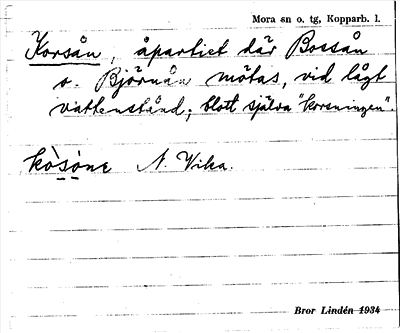 Mora sn o. tg, Kopparb. l.
Korsån, åpartiet där Bossån
o. Björnån mötas, vid lågt
vattenstånd; blott själva "korsningen".
kòsòne N. Vika.
Bror Lindén 1934